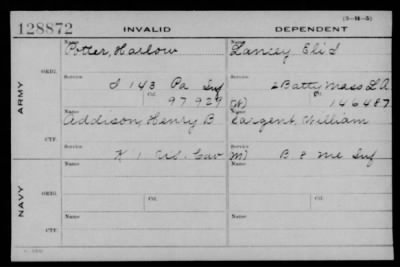 (3-M-5)
128872 INVALID DEPENDENT
ARMY
ORIG.
Name Name
Potter, Harlow Lancey Eli S
Service Service
I 143 Pa Inf 2 Batty Mass L A
Ctf. 97929 W) 146487
CTF.
Addison, Henry B Sargent, William
K 1 Cav M) B 8 Me Inf
NAVY
ORIG.
Name Name
Service Service
Ctf. Ctf.
CTF.
Name Name